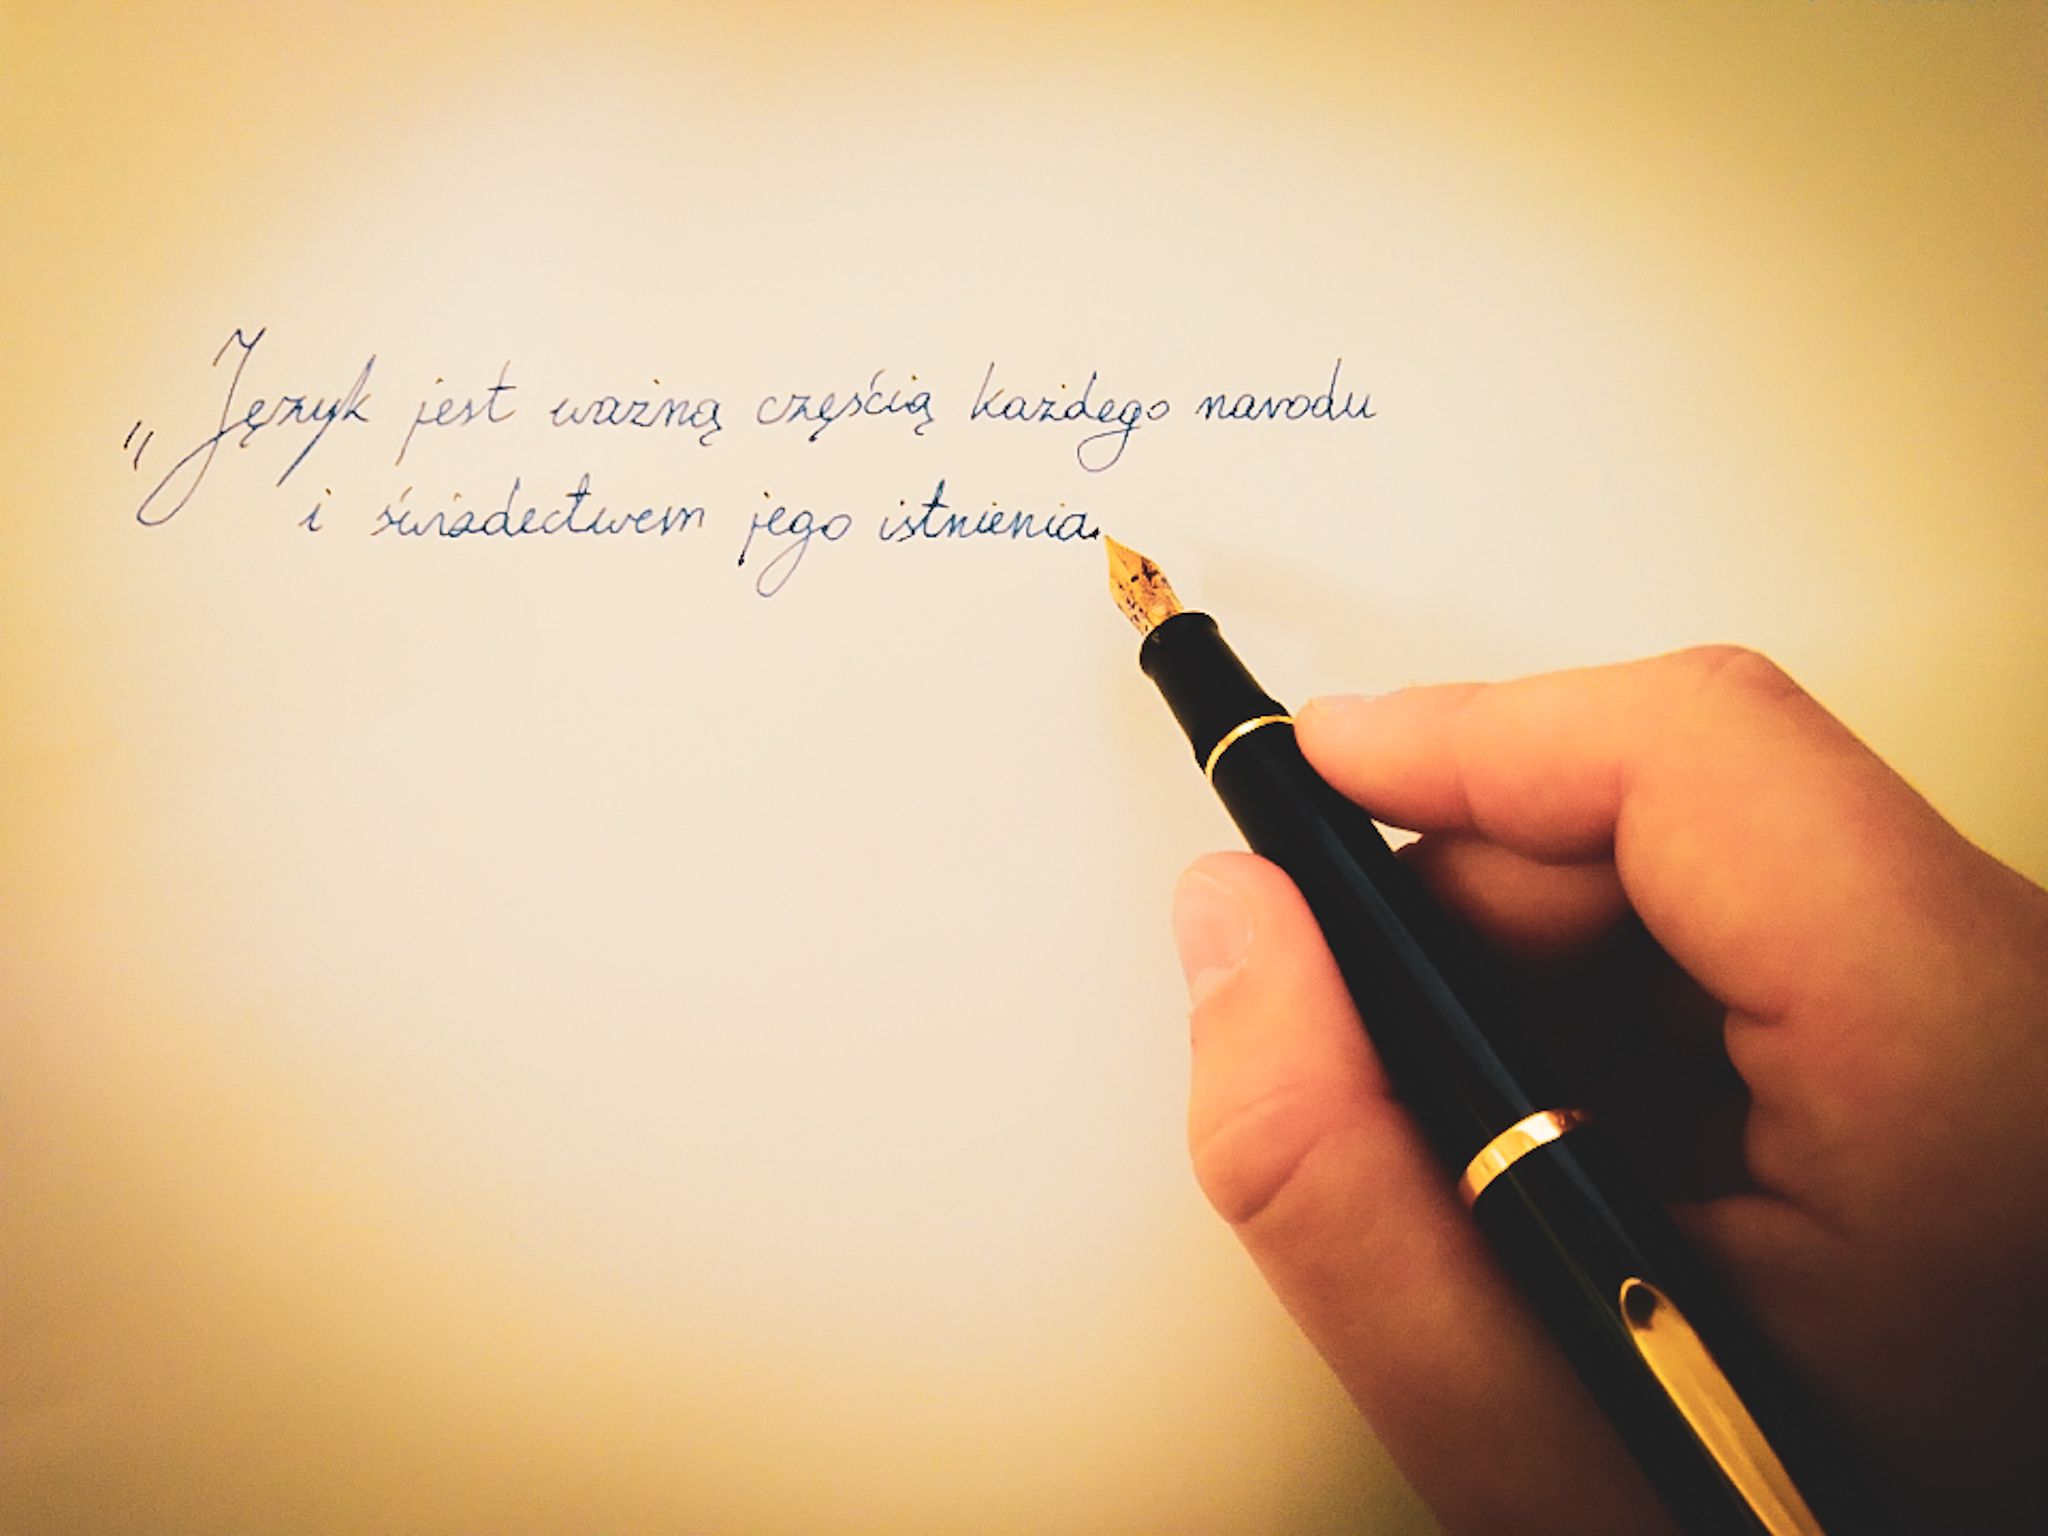 „Język jest ważną częścią każdego narodu
i świadectwem jego istnienia.